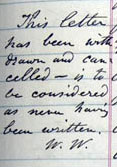 This letter
has been with
drawn and can
celled – is to
be considered
as never having
been written.
W. W.